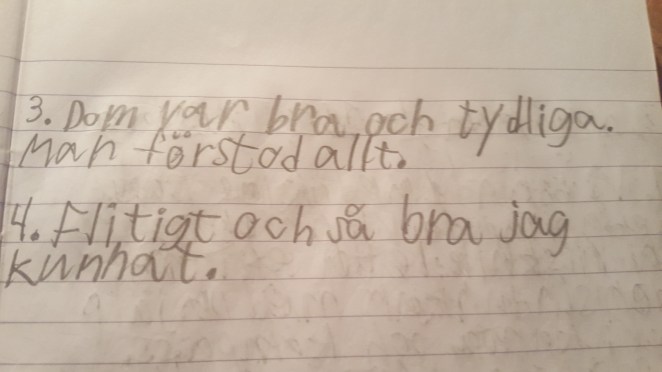 3. Dom var bra och tydliga.
Man förstod allt.
4. Flitigt och så bra jag
kunnat.